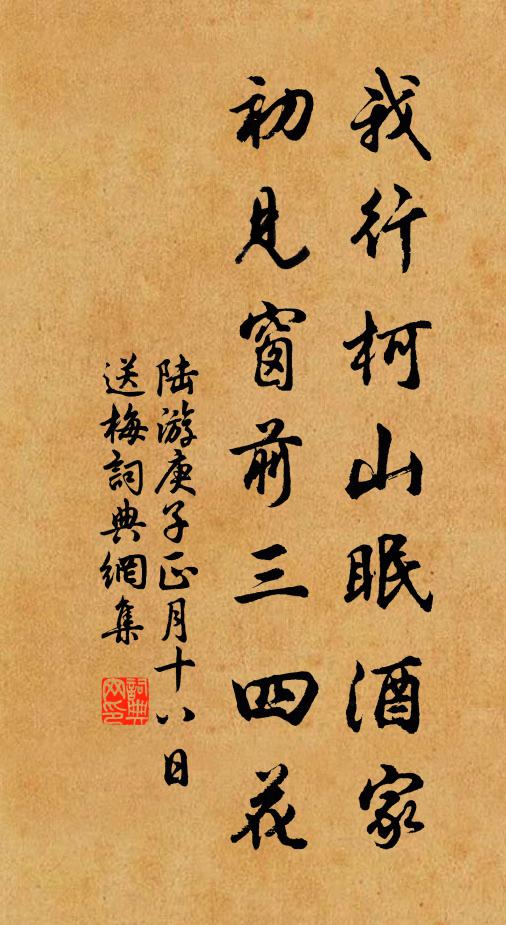 我行柯山眠酒家
初見窗前三四花
陆游庚子正月十八日
送梅詞典網集
詞典网印